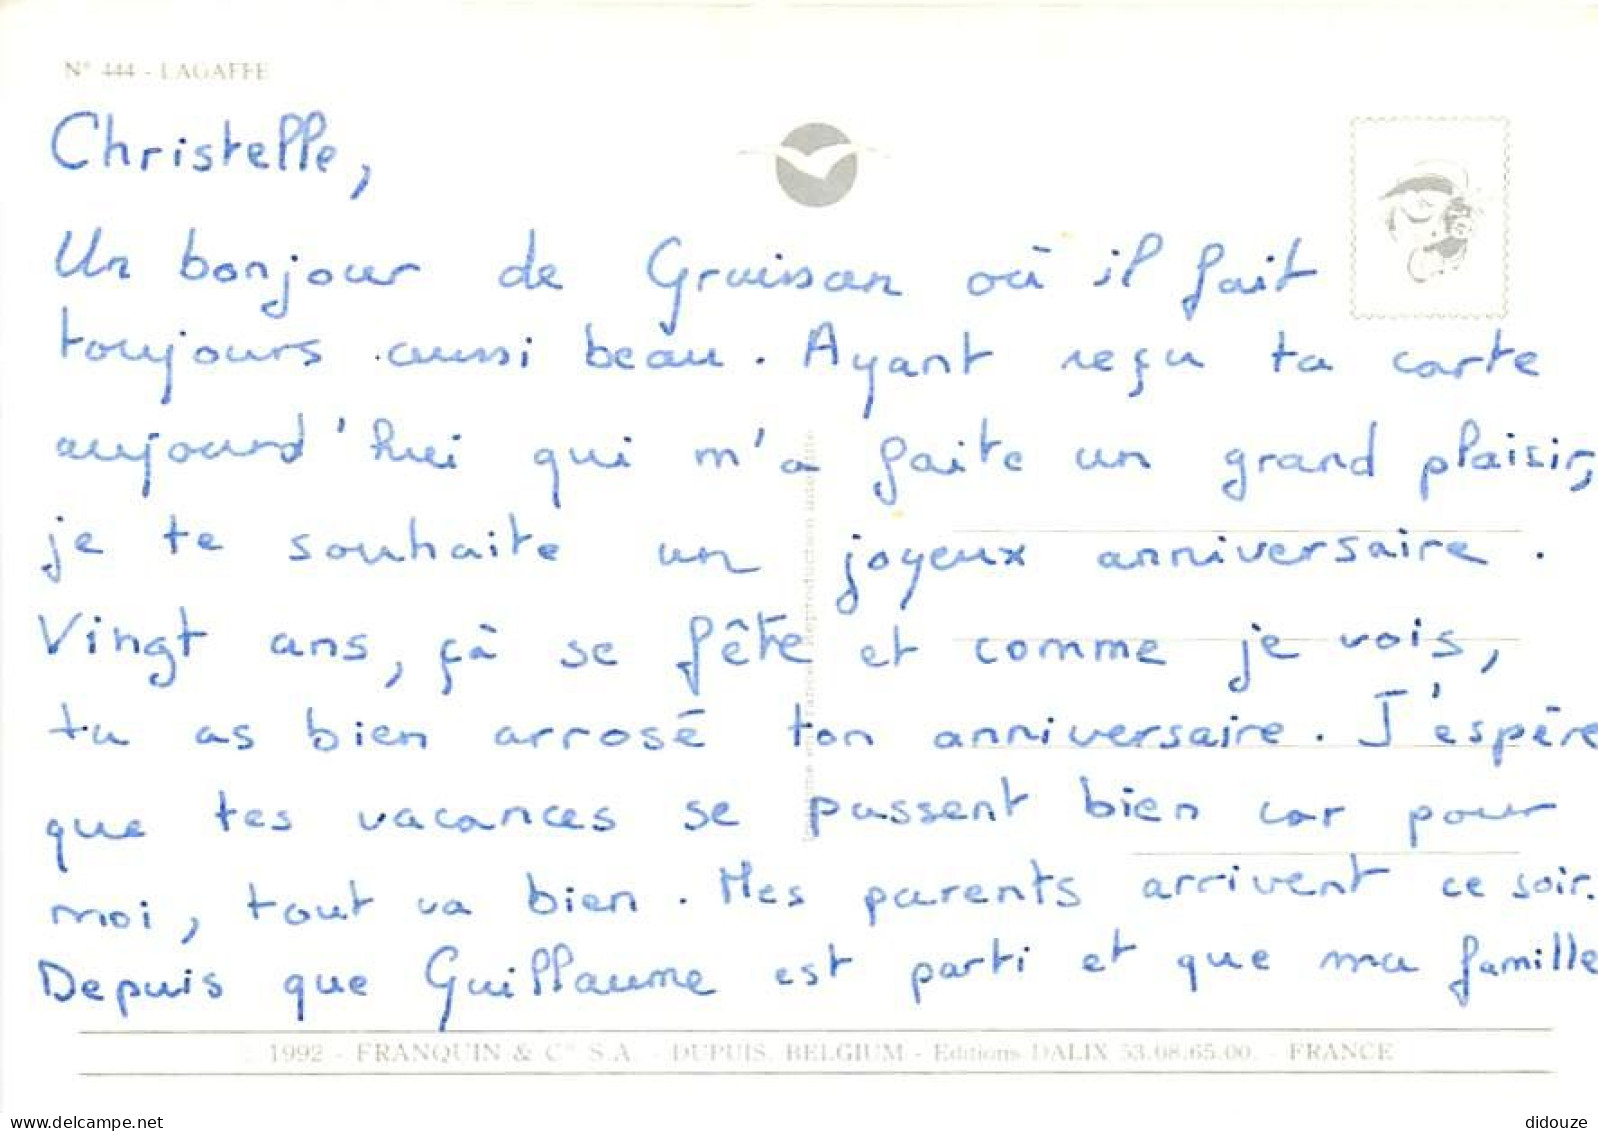 N° 444 - LAGAFFE
Christelle,
Un bonjour de Gruissan où il fait
toujours aussi beau. Ayant reçu ta carte
aujourd'hui qui m'a faite un grand plaisir,
je te souhaite un joyeux anniversaire.
Vingt ans, çà se fête et comme je vois,
tu as bien arrosé ton anniversaire. J'espère
que tes vacances se passent bien car pour
moi, tout va bien. Mes parents arrivent ce soir.
Depuis que Guillaume est parti et que ma famille
Reproduction interdite
1992 - FRANQUIN & Cie S.A. - DUPUIS, BELGIUM - Editions DALIX 53.08.65.00. - FRANCE
delcampe.net
didouze